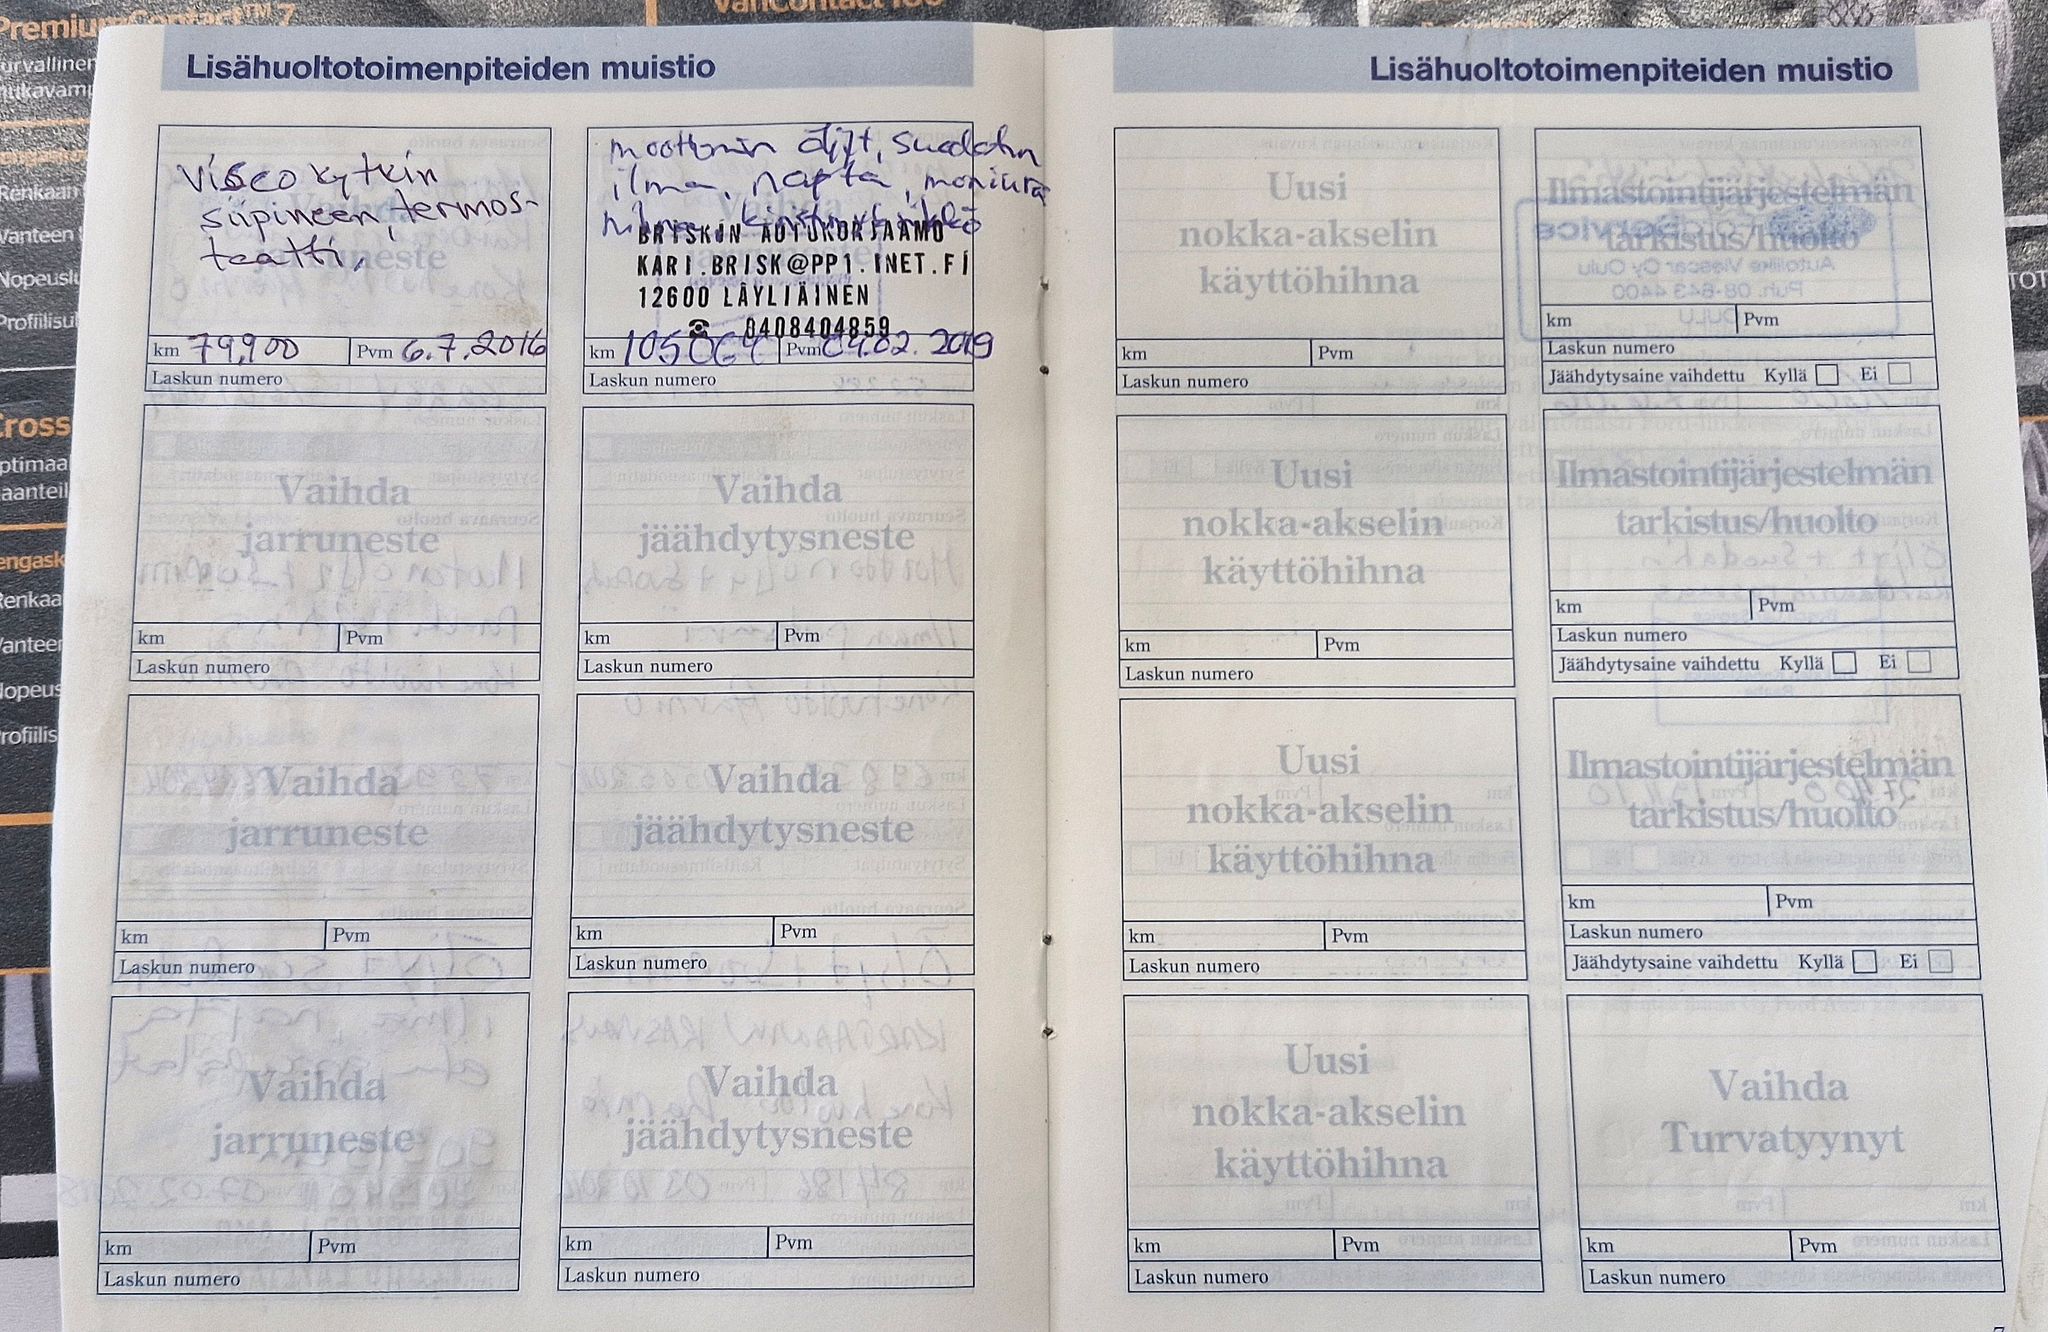 PremiumContact™ 7
VanContact 100
Lisähuoltotoimenpiteiden muistio
viscokytkin
siipineen, termos-
taatti,
km 79,900 Pvm 6.7.2016
Laskun numero
moottorin öljyt, suodatin
ilma, napta, moniura
hihna, kiristyslaikko
BRISKIN AUTOKORJAAMO
KARI.BRISK@PP1.INET.FI
12600 LÄYLIÄINEN
☎ 0408404859
km 105064 Pvm 04.02.2019
Laskun numero
Vaihda
jarruneste
km Pvm
Laskun numero
Vaihda
jäähdytysneste
km Pvm
Laskun numero
Vaihda
jarruneste
km Pvm
Laskun numero
Vaihda
jäähdytysneste
km Pvm
Laskun numero
Vaihda
jarruneste
km Pvm
Laskun numero
Vaihda
jäähdytysneste
km Pvm
Laskun numero
Lisähuoltotoimenpiteiden muistio
Uusi
nokka-akselin
käyttöhihna
km Pvm
Laskun numero
Ilmastointijärjestelmän
tarkistus/huolto
km Pvm
Laskun numero
Jäähdytysaine vaihdettu Kyllä Ei
Uusi
nokka-akselin
käyttöhihna
km Pvm
Laskun numero
Ilmastointijärjestelmän
tarkistus/huolto
km Pvm
Laskun numero
Jäähdytysaine vaihdettu Kyllä Ei
Uusi
nokka-akselin
käyttöhihna
km Pvm
Laskun numero
Ilmastointijärjestelmän
tarkistus/huolto
km Pvm
Laskun numero
Jäähdytysaine vaihdettu Kyllä Ei
Uusi
nokka-akselin
käyttöhihna
km Pvm
Laskun numero
Vaihda
Turvatyynyt
km Pvm
Laskun numero